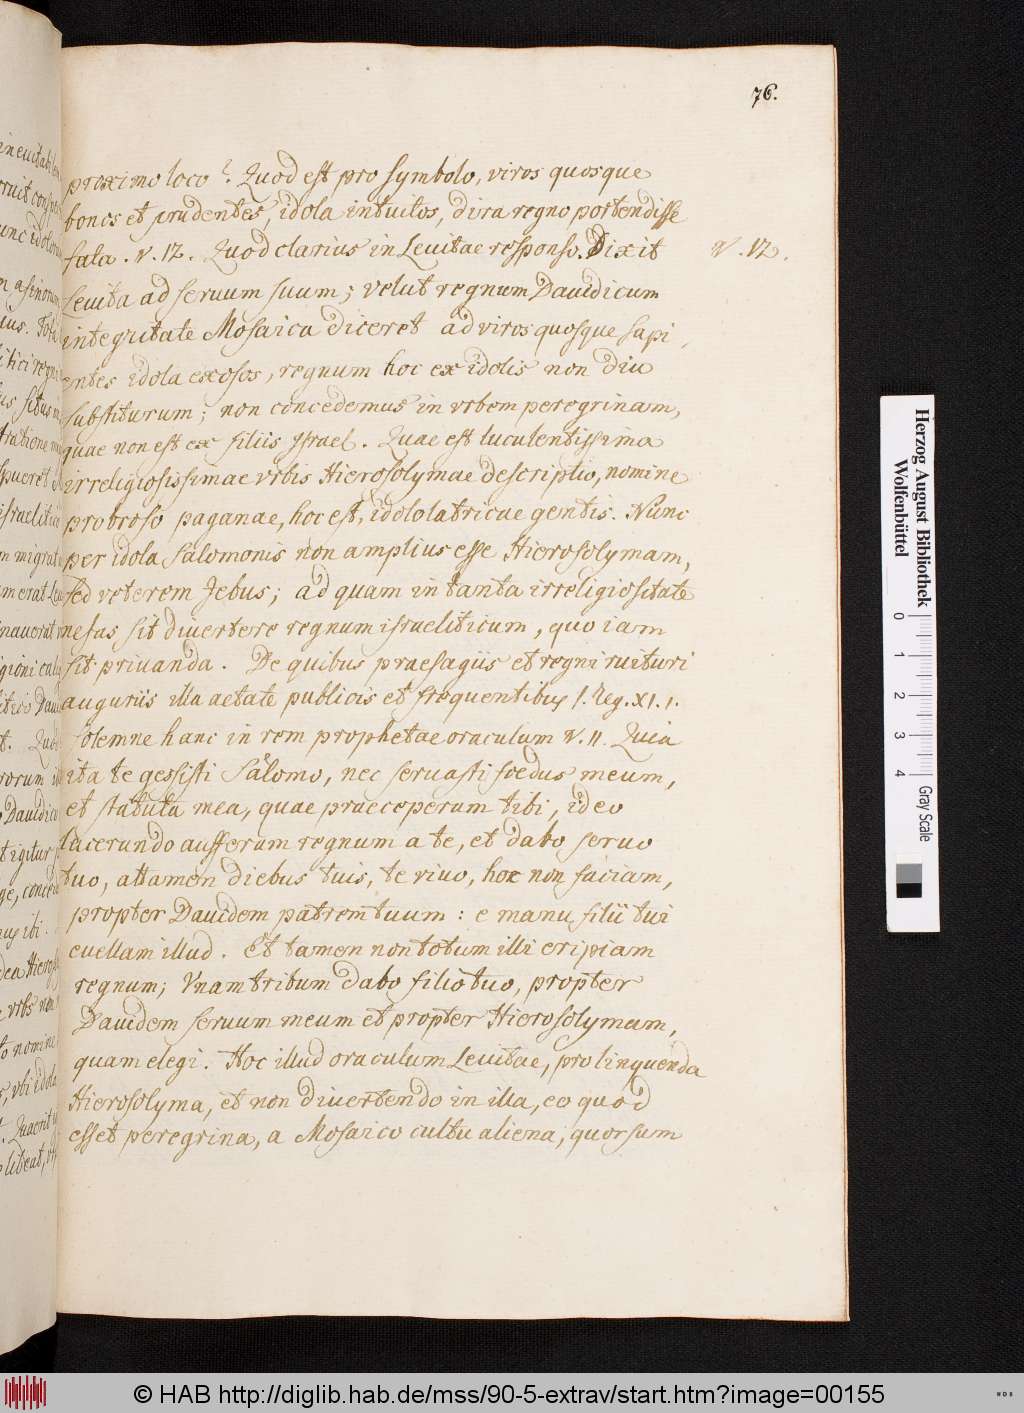 76.
proximo loco? Quod est pro symbolo, viros quosque
bonos et prudentes, idola intuitos, dira regno portendisse
fata. v. 12. Quod clarius in Levitae responso. Dixit
v. 12.
Levita ad seruum suum; velut regnum Dauidicum
integritate Mosaica diceret ad viros quosque sapi
entes idola exosos, regnum hoc ex idolis non diu
substiturum; non concedemus in vrbem peregrinam,
quae non est ex filiis Israel. Quae est luculentissima
irreligiosissimae vrbis Hierosolymae descriptio, nomine
probroso paganae, hoc est, idololatricae gentis. Nunc
per idola Salomonis non amplius esse Hierosolymam,
sed veterem Jebus; ad quam in tanta irreligiositate
nefas sit divertere regnum israeliticum, quo iam
sit priuanda. De quibus praesagiis et regni ruituri
auguriis illa aetate publicis et frequentibus 1. Reg. XI. 1.
solemne hanc in rem prophetae oraculum v. 11. Quia
ita te gessisti Salomo, nec seruasti foedus meum,
et statuta mea, quae praeceperam tibi, ideo
lacerando aufferam regnum a te, et dabo seruo
tuo, attamen diebus tuis, te viuo, hoc non faciam,
propter Dauidem patrem tuum: e manu filii tui
euellam illud. Et tamen non totum illi eripiam
regnum; Vnam tribum dabo filio tuo, propter
Dauidem seruum meum et propter Hierosolymam,
quam elegi. Hoc illud oraculum Leuitae, pro linquenda
Hierosolyma, et non divertendo in illa, eo quod
esset peregrina, a Mosaico cultu aliena, quorsum
Herzog August Bibliothek
Wolfenbüttel
0 1 2 3 4
Gray Scale
© HAB http://diglib.hab.de/mss/90-5-extrav/start.htm?image=00155